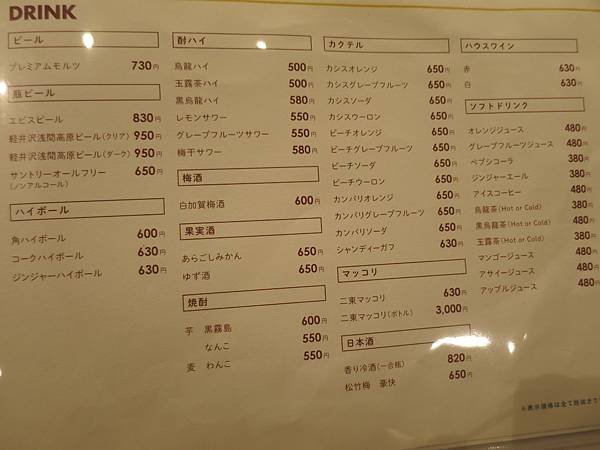 DRINK
ビール
プレミアムモルツ 730円
瓶ビール
エビスビール 830円
軽井沢浅間高原ビール(クリア) 950円
軽井沢浅間高原ビール(ダーク) 950円
サントリーオールフリー 650円
(ノンアルコール)
ハイボール
角ハイボール 600円
コークハイボール 630円
ジンジャーハイボール 630円
酎ハイ
烏龍ハイ 500円
玉露茶ハイ 500円
黒烏龍ハイ 580円
レモンサワー 550円
グレープフルーツサワー 550円
梅干サワー 580円
梅酒
白加賀梅酒 600円
果実酒
あらごしみかん 650円
ゆず酒 650円
焼酎
芋 黒霧島 600円
なんこ 550円
麦 わんこ 550円
カクテル
カシスオレンジ 650円
カシスグレープフルーツ 650円
カシスソーダ 650円
カシスウーロン 650円
ピーチオレンジ 650円
ピーチグレープフルーツ 650円
ピーチソーダ 650円
ピーチウーロン 650円
カンパリオレンジ 650円
カンパリグレープフルーツ 650円
カンパリソーダ 650円
シャンディーガフ 630円
マッコリ
二東マッコリ 630円
二東マッコリ(ボトル) 3,000円
日本酒
香り冷酒(一合瓶) 820円
松竹梅 豪快 650円
ハウスワイン
赤 630円
白 630円
ソフトドリンク
オレンジジュース 480円
グレープフルーツジュース 480円
ペプシコーラ 380円
ジンジャーエール 380円
アイスコーヒー 480円
烏龍茶(Hot or Cold) 380円
黒烏龍茶(Hot or Cold) 380円
玉露茶(Hot or Cold) 380円
マンゴージュース 480円
アサイージュース 480円
アップルジュース 480円
※表示価格は全て税抜きで